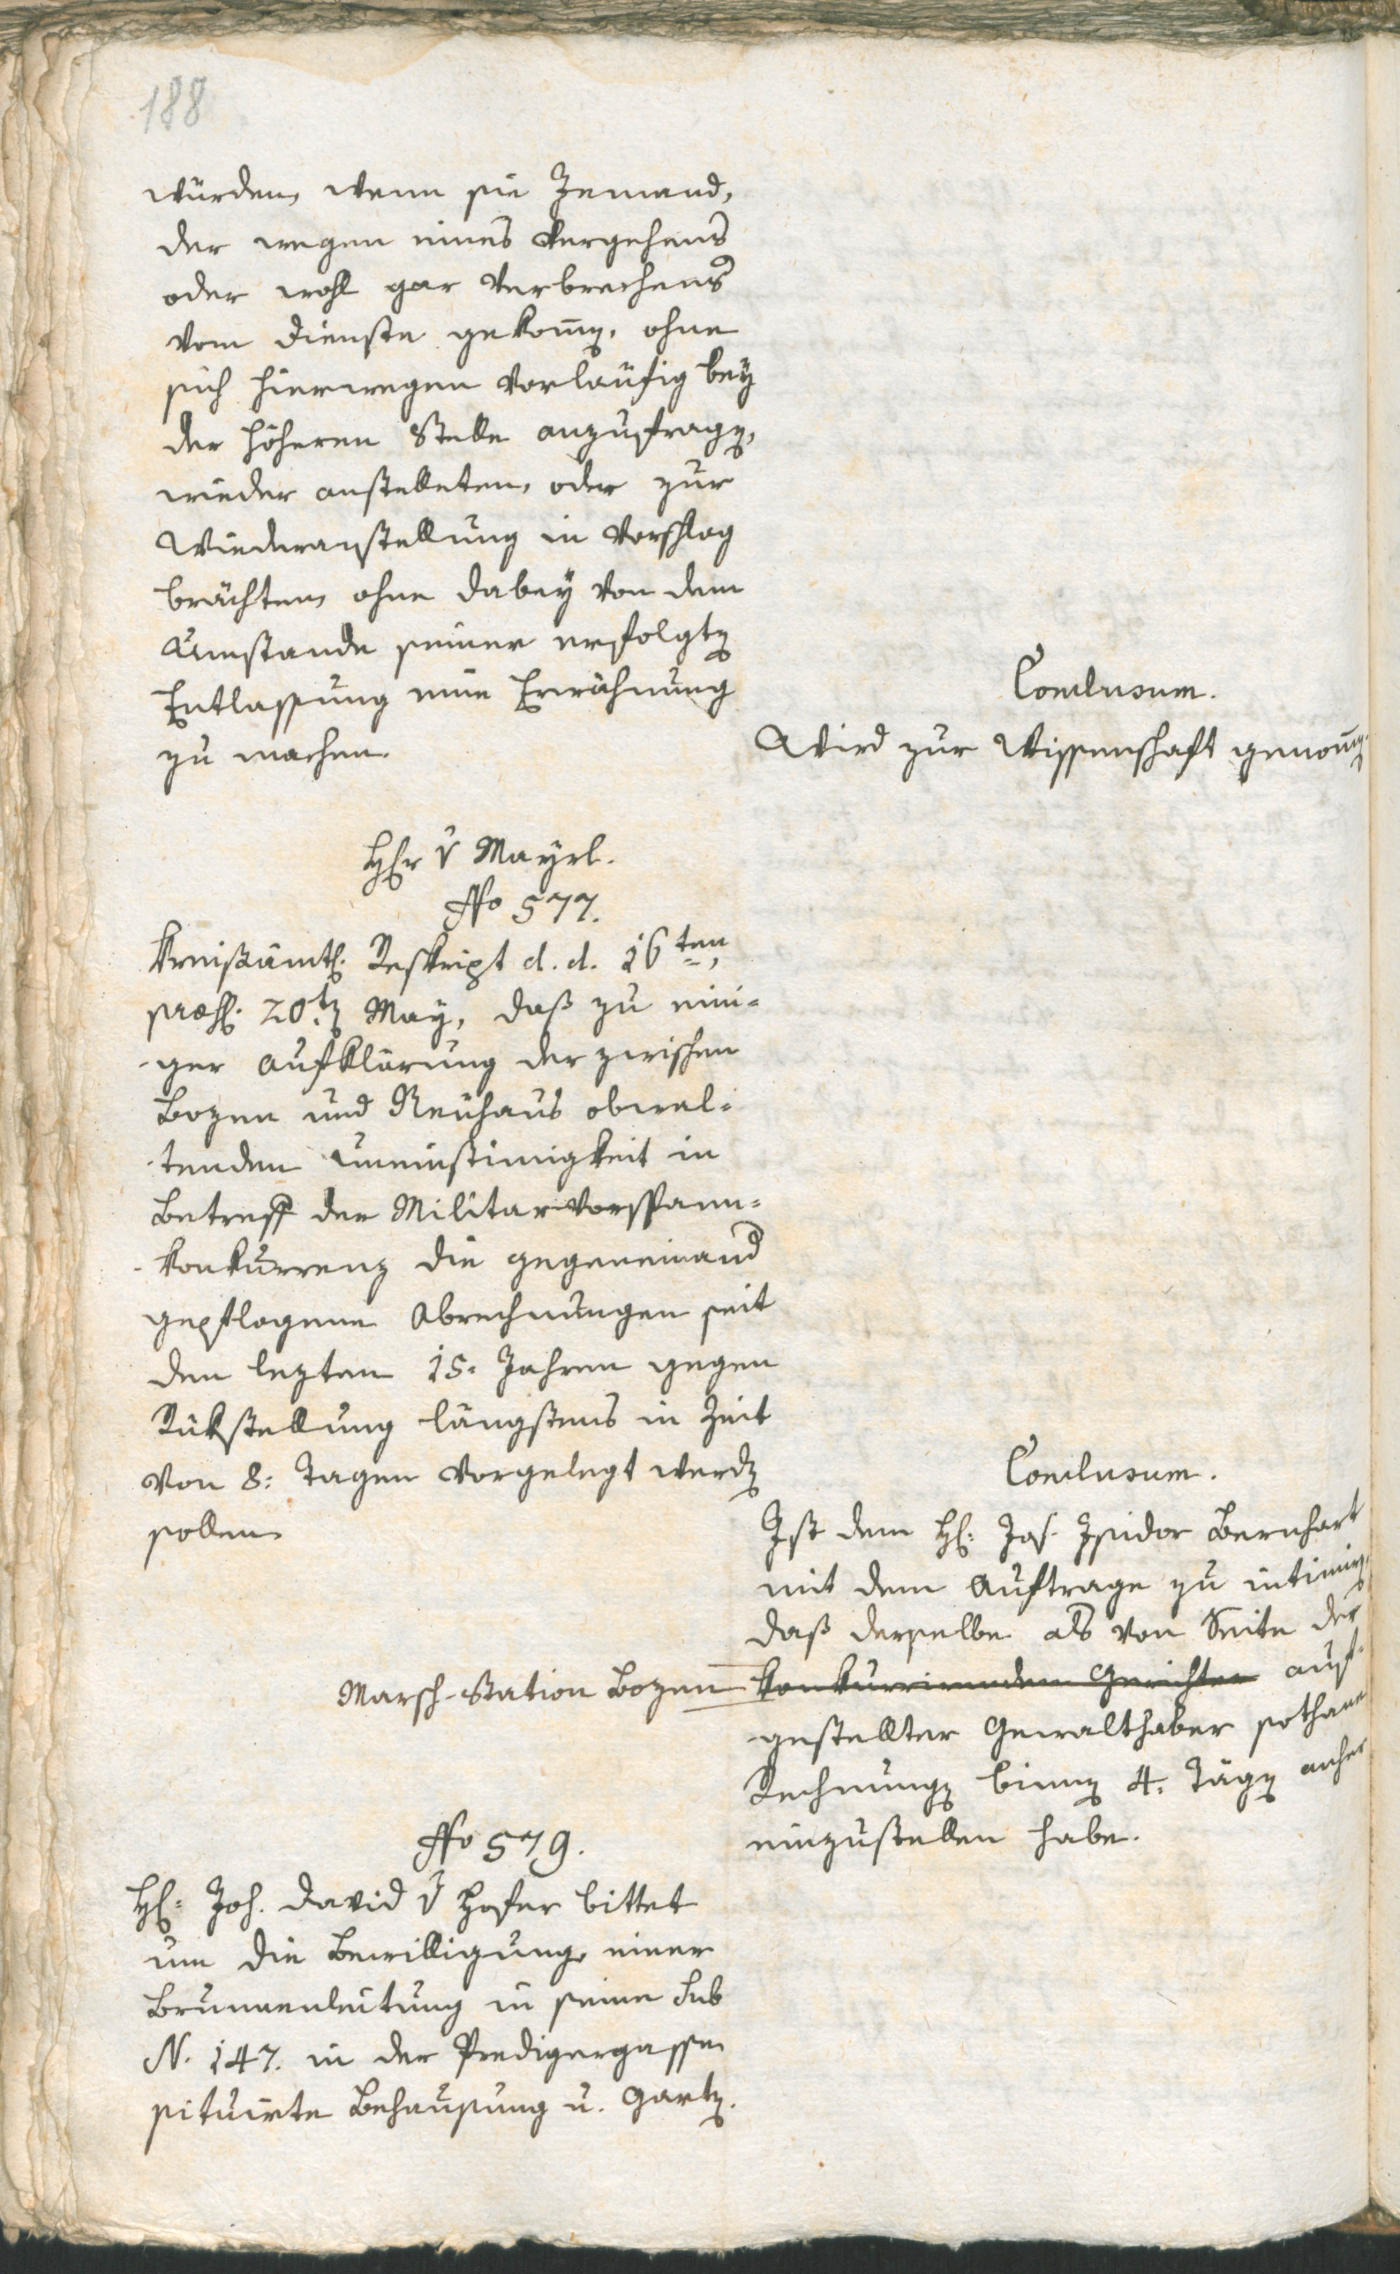 188
würden, wenn sie Jemand,
der wegen eines Vergehens
oder wohl gar Verbrechens
vom Dienste gekom̅en, ohne
sich hierwegen vorläufig bey
der höheren Stelle anzufragen,
wieder anstelleten, oder zur
Wiederanstellung in Vorschlag
brächten, ohne dabey von dem
Umstande seiner erfolgten
Entlassung eine Erwähnung
zu machen.
Conclusum.
Wird zur Wissenschaft genom̅en.
Hr v Mayrl.
No 577.
Kreisämtl. Reskript d. d. 16ten,
præs. 20ten May, daß zu eini-
ger Aufklärung der zwischen
Bozen und Neuhaus obwal-
tenden Uneinstim̅igkeit in
Betreff der Militar-Vorspann-
Konkurrenz die gegeneinand
gepflogene Abrechnungen seit
den lezten 15. Jahren gegen
Rükstellung längstens in Zeit
von 8: Tagen vorgelegt werden
sollen.
Conclusum.
Ist dem H: Jos. Isidor Bernhart
mit dem Auftrage zu intimiren,
daß derselbe als von Seite der
Marsch-Station Bozen konkurrirenden Gerichten auf-
gestellter Gewalthaber sothane
Rechnungen binnen 4. Tägen anher
einzustellen habe.
No 579.
H: Joh. David v Hofer bittet
um die Bewilligung einer
Brunnenleitung in seine sub
N. 147. in der Predigergassen
situirte Behausung u. Garten.